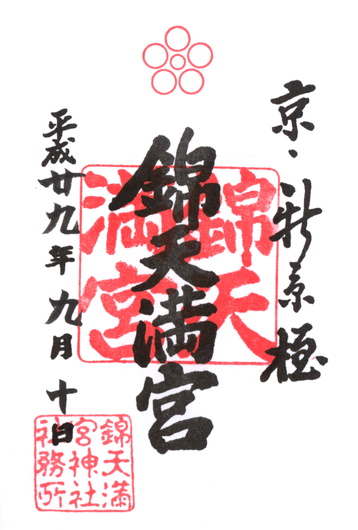 京、新京極
錦天満宮
錦天満宮
平成廿九年九月十日
錦天満
宮神社
社務所